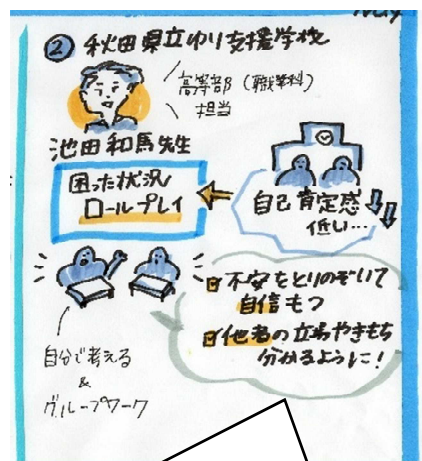 ② 秋田県立ゆり支援学校
高等部（職業科）
担当
池田和馬先生
困った状況
ロールプレイ
自己肯定感
低い…
不安をとりのぞいて
自信もつ
他者の立場やきもち
分かるように！
自分で考える
&
グループワーク